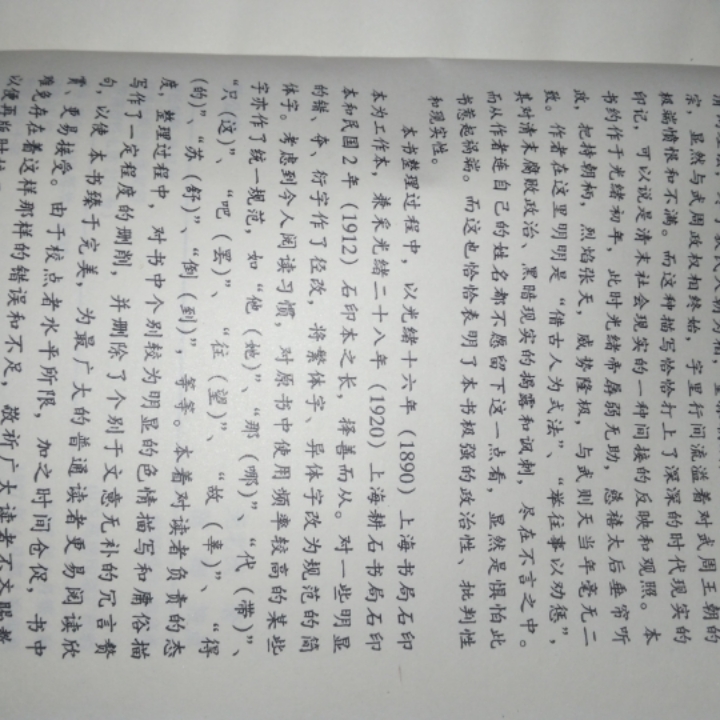 淫,显然与武周政权相终始,字里行间流溢着对武周王朝的
极端愤恨和不满。而这种描写恰恰打上了深深的时代现实的
印记,可以说是清末社会现实的一种间接的反映和观照。本
书约作于光绪初年,此时光绪帝孱弱无助,慈禧太后垂帘听
政,把持朝柄,烈焰张天,威势隆极,与武则天当年毫无二
致。作者在这里明明是“借古人为式法”、“举往事以劝惩”,
其对清末腐败政治、黑暗现实的揭露和讽刺,尽在不言之中。
而从作者连自己的姓名都不愿留下这一点看,显然是惧怕此
书惹起祸端。而这也恰恰表明了本书极强的政治性、批判性
和现实性。
本书整理过程中,以光绪十六年(1890)上海书局石印
本为工作本,兼采光绪二十八年(1920)上海耕石书局石印
本和民国2年(1912)石印本之长,择善而从。对一些明显
的错、夺、衍字作了径改,将繁体字、异体字改为规范的简
体字。考虑到今人阅读习惯,对原书中使用频率较高的某些
字亦作了统一规范,如“他(她)”、“那(哪)”、“代(带)”、
“只(这)”、“吧(罢)”、“往(望)”、“故(辜)”、“得
(的)”、“苏(舒)”、“倒(到)”,等等。本着对读者负责的态
度,整理过程中,对书中个别较为明显的色情描写和庸俗描
写作了一定程度的删削,并删除了个别于文意无补的冗言赘
句,以使本书臻于完美,为最广大的普通读者更易阅读欣
赏、更易接受。由于校点者水平所限,加之时间仓促,书中
难免存在着这样那样的错误和不足,敬祈广大读者不吝赐教
以便再版时